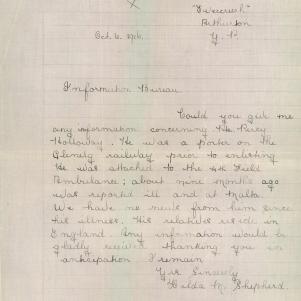 Petherton
Oct. 6. 1916.
Information Bureau
Could you give me
any information concerning Pte. Percy
Holloway. He was a porter on the
Glenelg railway prior to enlisting.
He was attached to the 4th Field
Ambulance; about nine months ago
was reported ill and at Malta.
We have no news from him since
his illness. His relatives reside in
England. Any information would be
gladly received thanking you in
anticipation I remain
Yrs Sincerely
Hilda M. Shepherd.